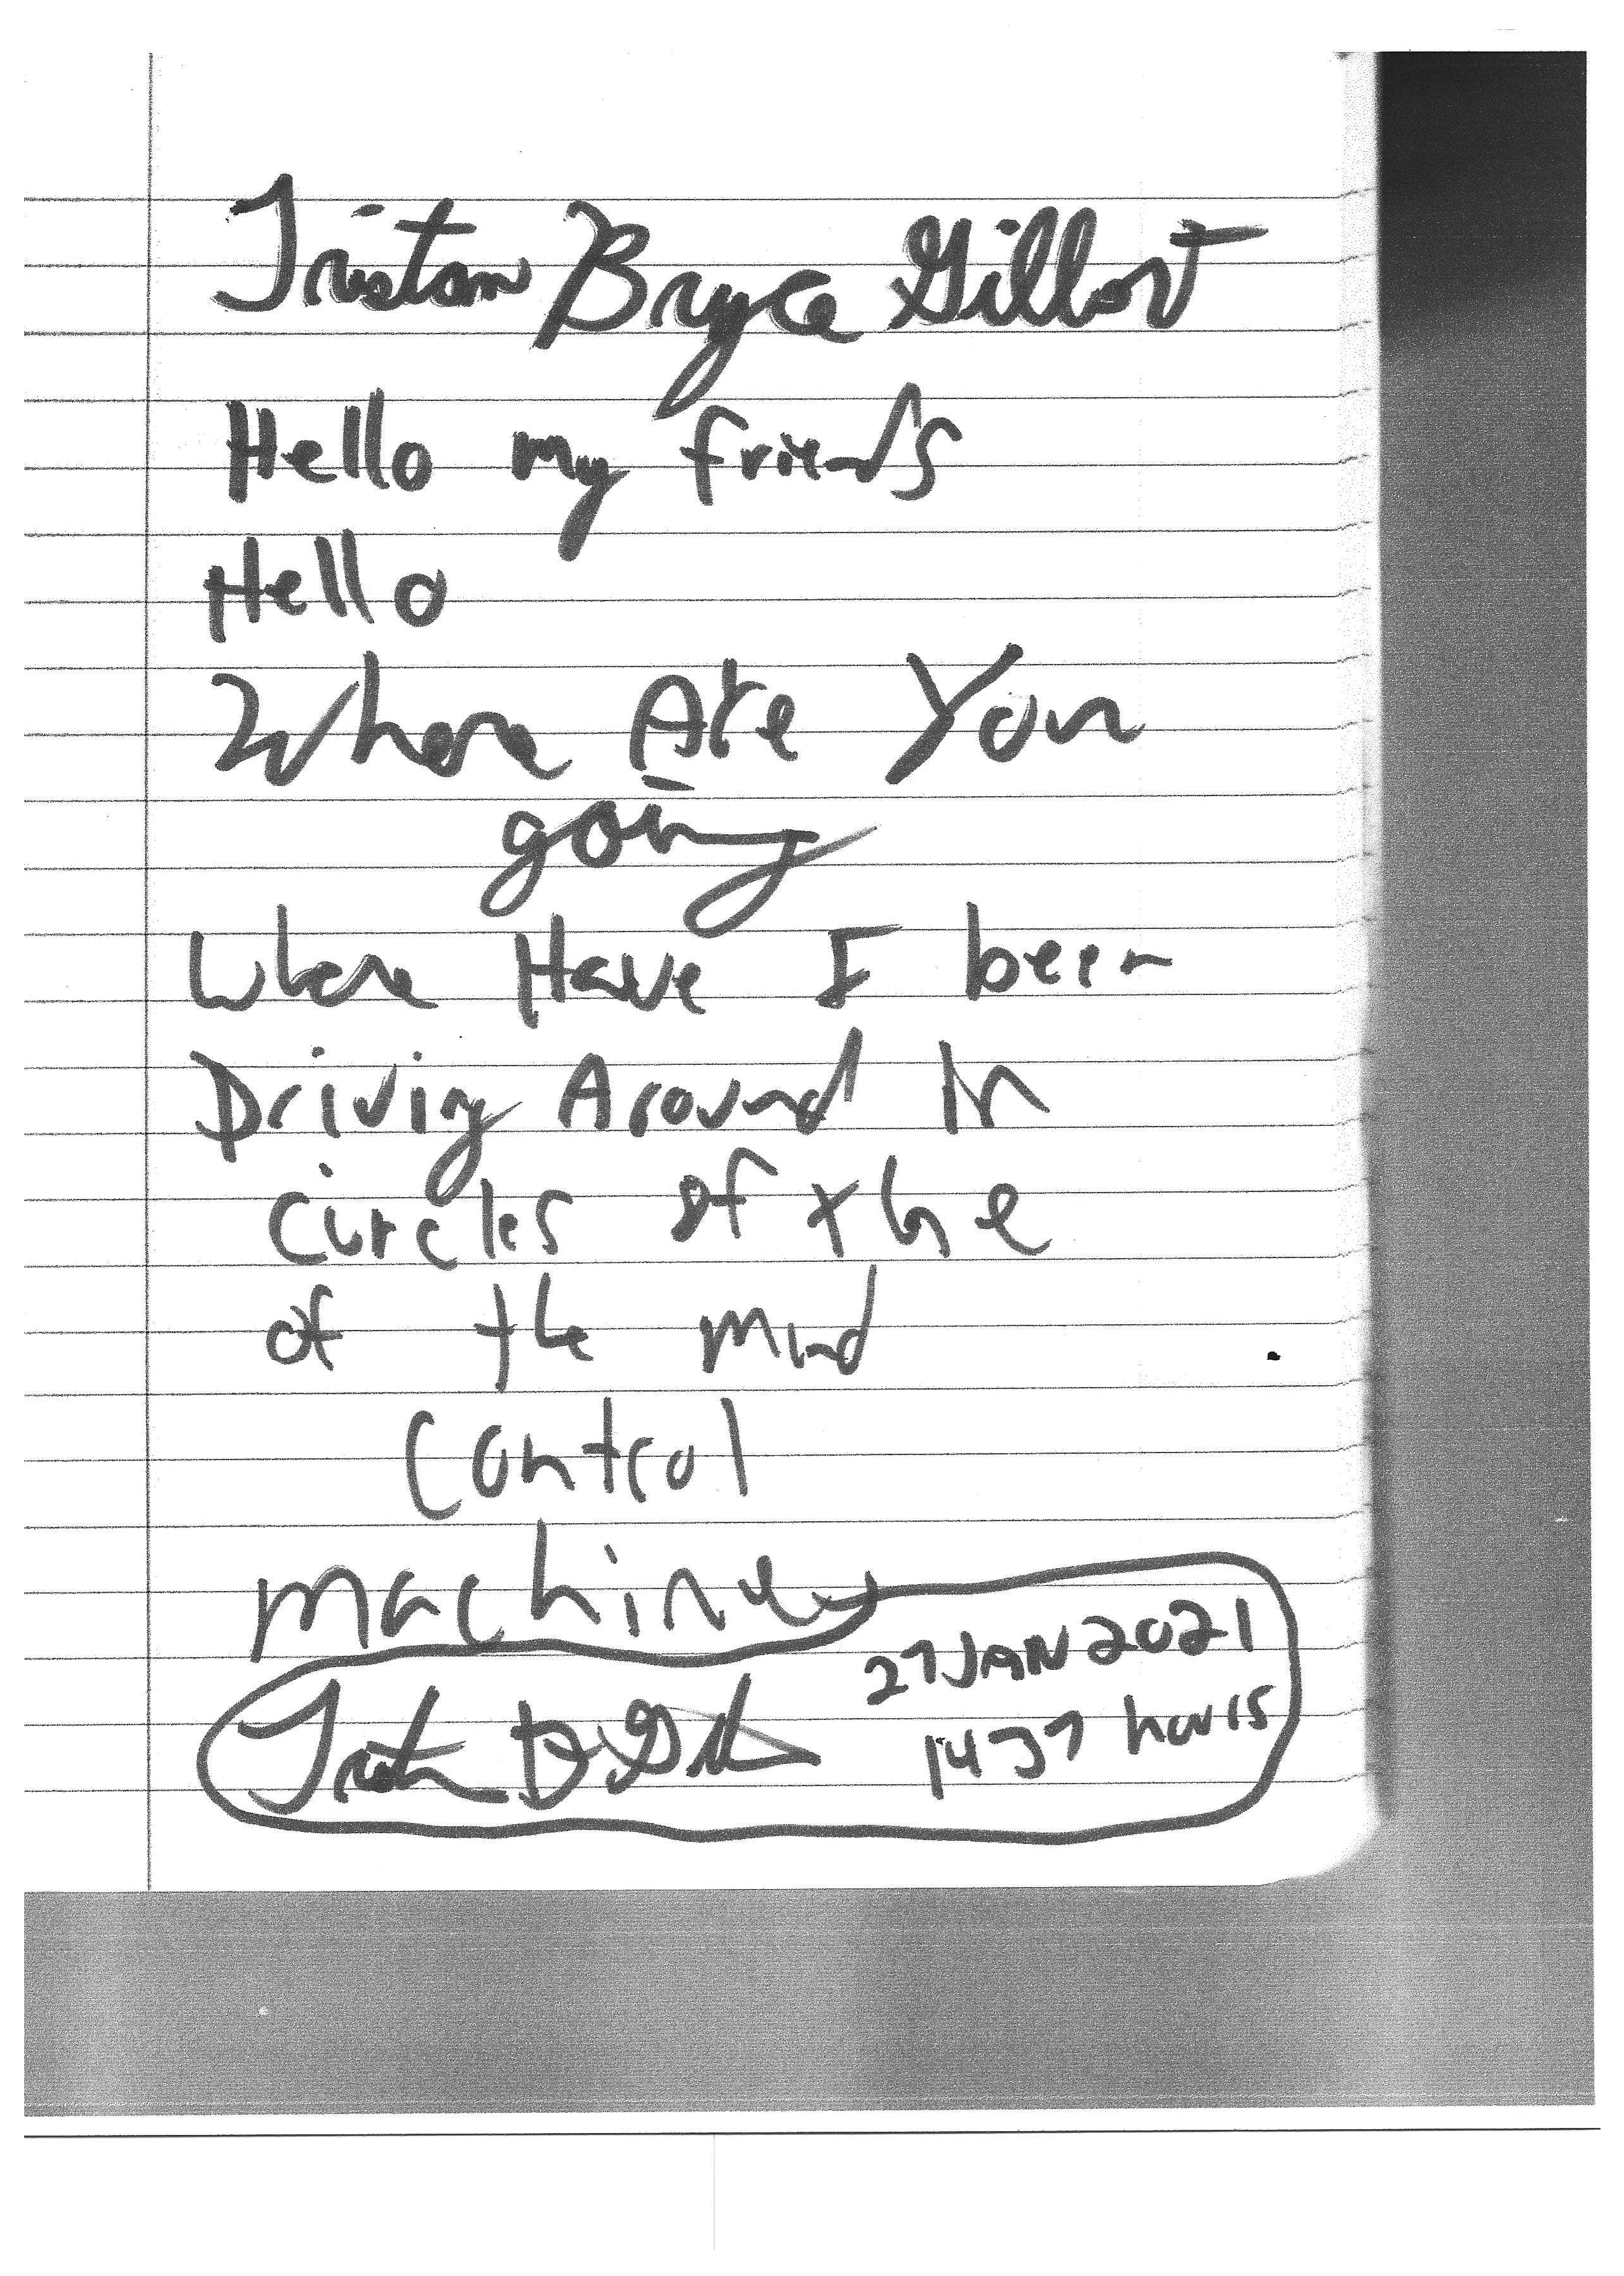 Tristan Bryce Gilbert
Hello my friends
Hello
Where Are You
going
Where Have I been
Driving Around In
circles of the
of the mind
control
machine
27JAN2021
1437 hours